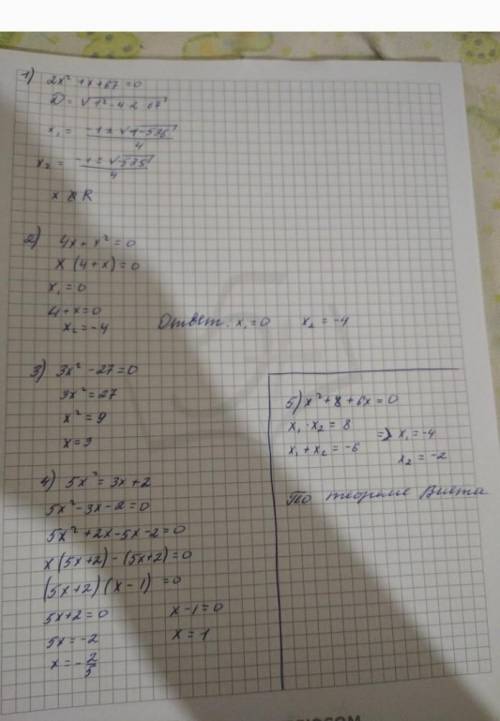 1) 2x² + x + 67 = 0
D = √1² - 4 · 2 · 67
x₁ = -1 ± √1 - 536 / 4
x₂ = -1 ± √-535 / 4
x ∉ R
2) 4x + x² = 0
x (4 + x) = 0
x₁ = 0
4 + x = 0
x₂ = -4 Ответ: x₁ = 0 x₂ = -4
3) 3x² - 27 = 0
3x² = 27
x² = 9
x = 3
4) 5x² = 3x + 2
5x² - 3x - 2 = 0
5x² + 2x - 5x - 2 = 0
x (5x + 2) - (5x + 2) = 0
(5x + 2) (x - 1) = 0
5x + 2 = 0 x - 1 = 0
5x = -2 x = 1
x = - 2/5
5) x² + 8 + 6x = 0
x₁ · x₂ = 8
x₁ + x₂ = -6 => x₁ = -4
x₂ = -2
По теореме Виета